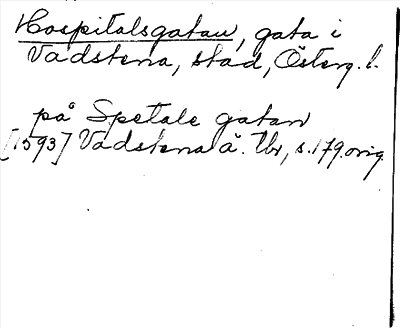 Hospitalsgatan, gata i
Vadstena, stad, Österg. l.
på Spetale gatan
[1593] Vadstena ä. Tb, s. 179. orig.